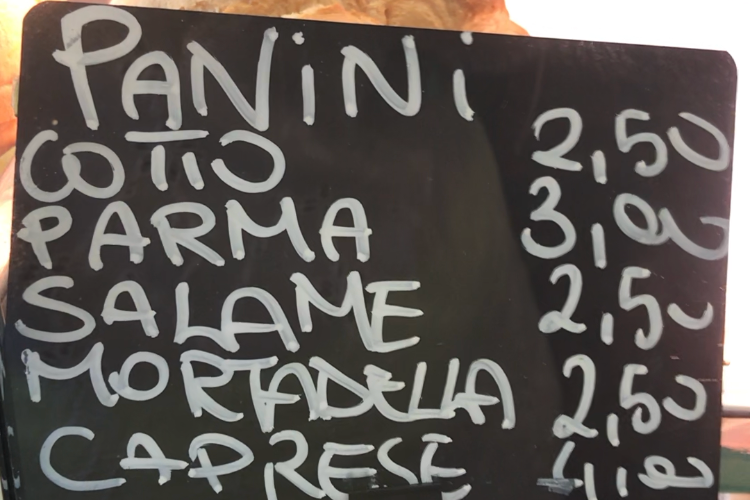 PANiNi
COTTO 2,50
PARMA 3,00
SALAME 2,50
MORTADELLA 2,50
CAPRESE 4,00